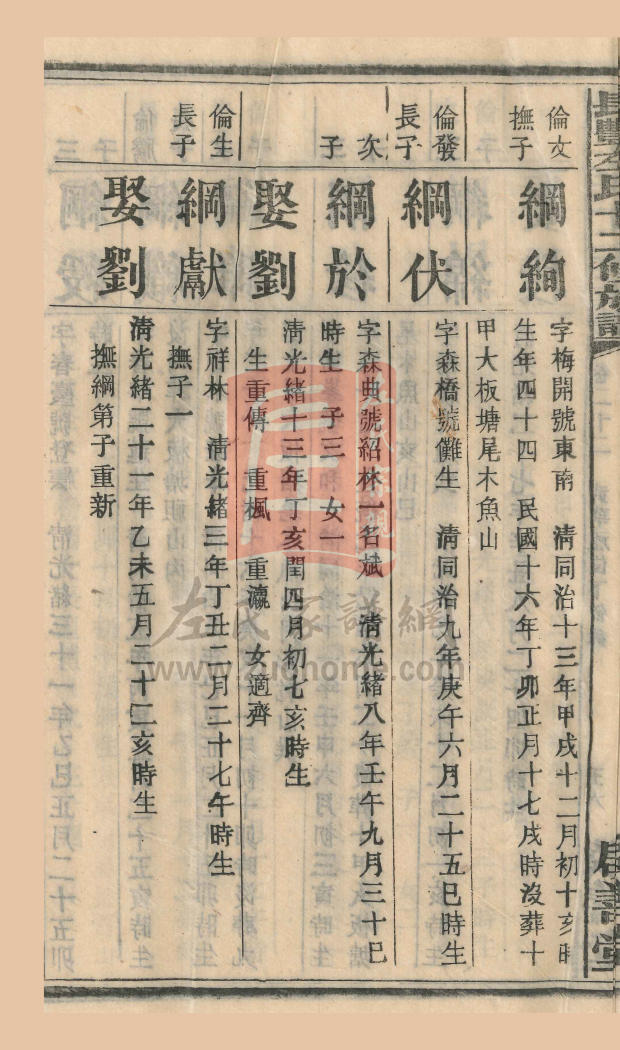 倫文
撫子
綱絢
字梅開號東南　清同治十三年甲戌十二月初十亥時
生年四十四　民國十六年丁卯正月十七戌時沒葬十
甲大板塘尾木魚山
倫發
長子
綱伏
字森橋號儺生　清同治九年庚午六月二十五巳時生
次
子
綱於
字森典號紹林一名斌　清光緒八年壬午九月三十巳
時生　子三　女一
娶劉
清光緒十三年丁亥閏四月初七亥時生
生重傳　重楓　重瀛　女適齊
倫生
長子
綱獻
字祥林　清光緒三年丁丑二月二十七午時生
撫子一
娶劉
清光緒二十一年乙未五月二十二亥時生
撫綱第子重新
左氏家譜網
www.zuohome.com